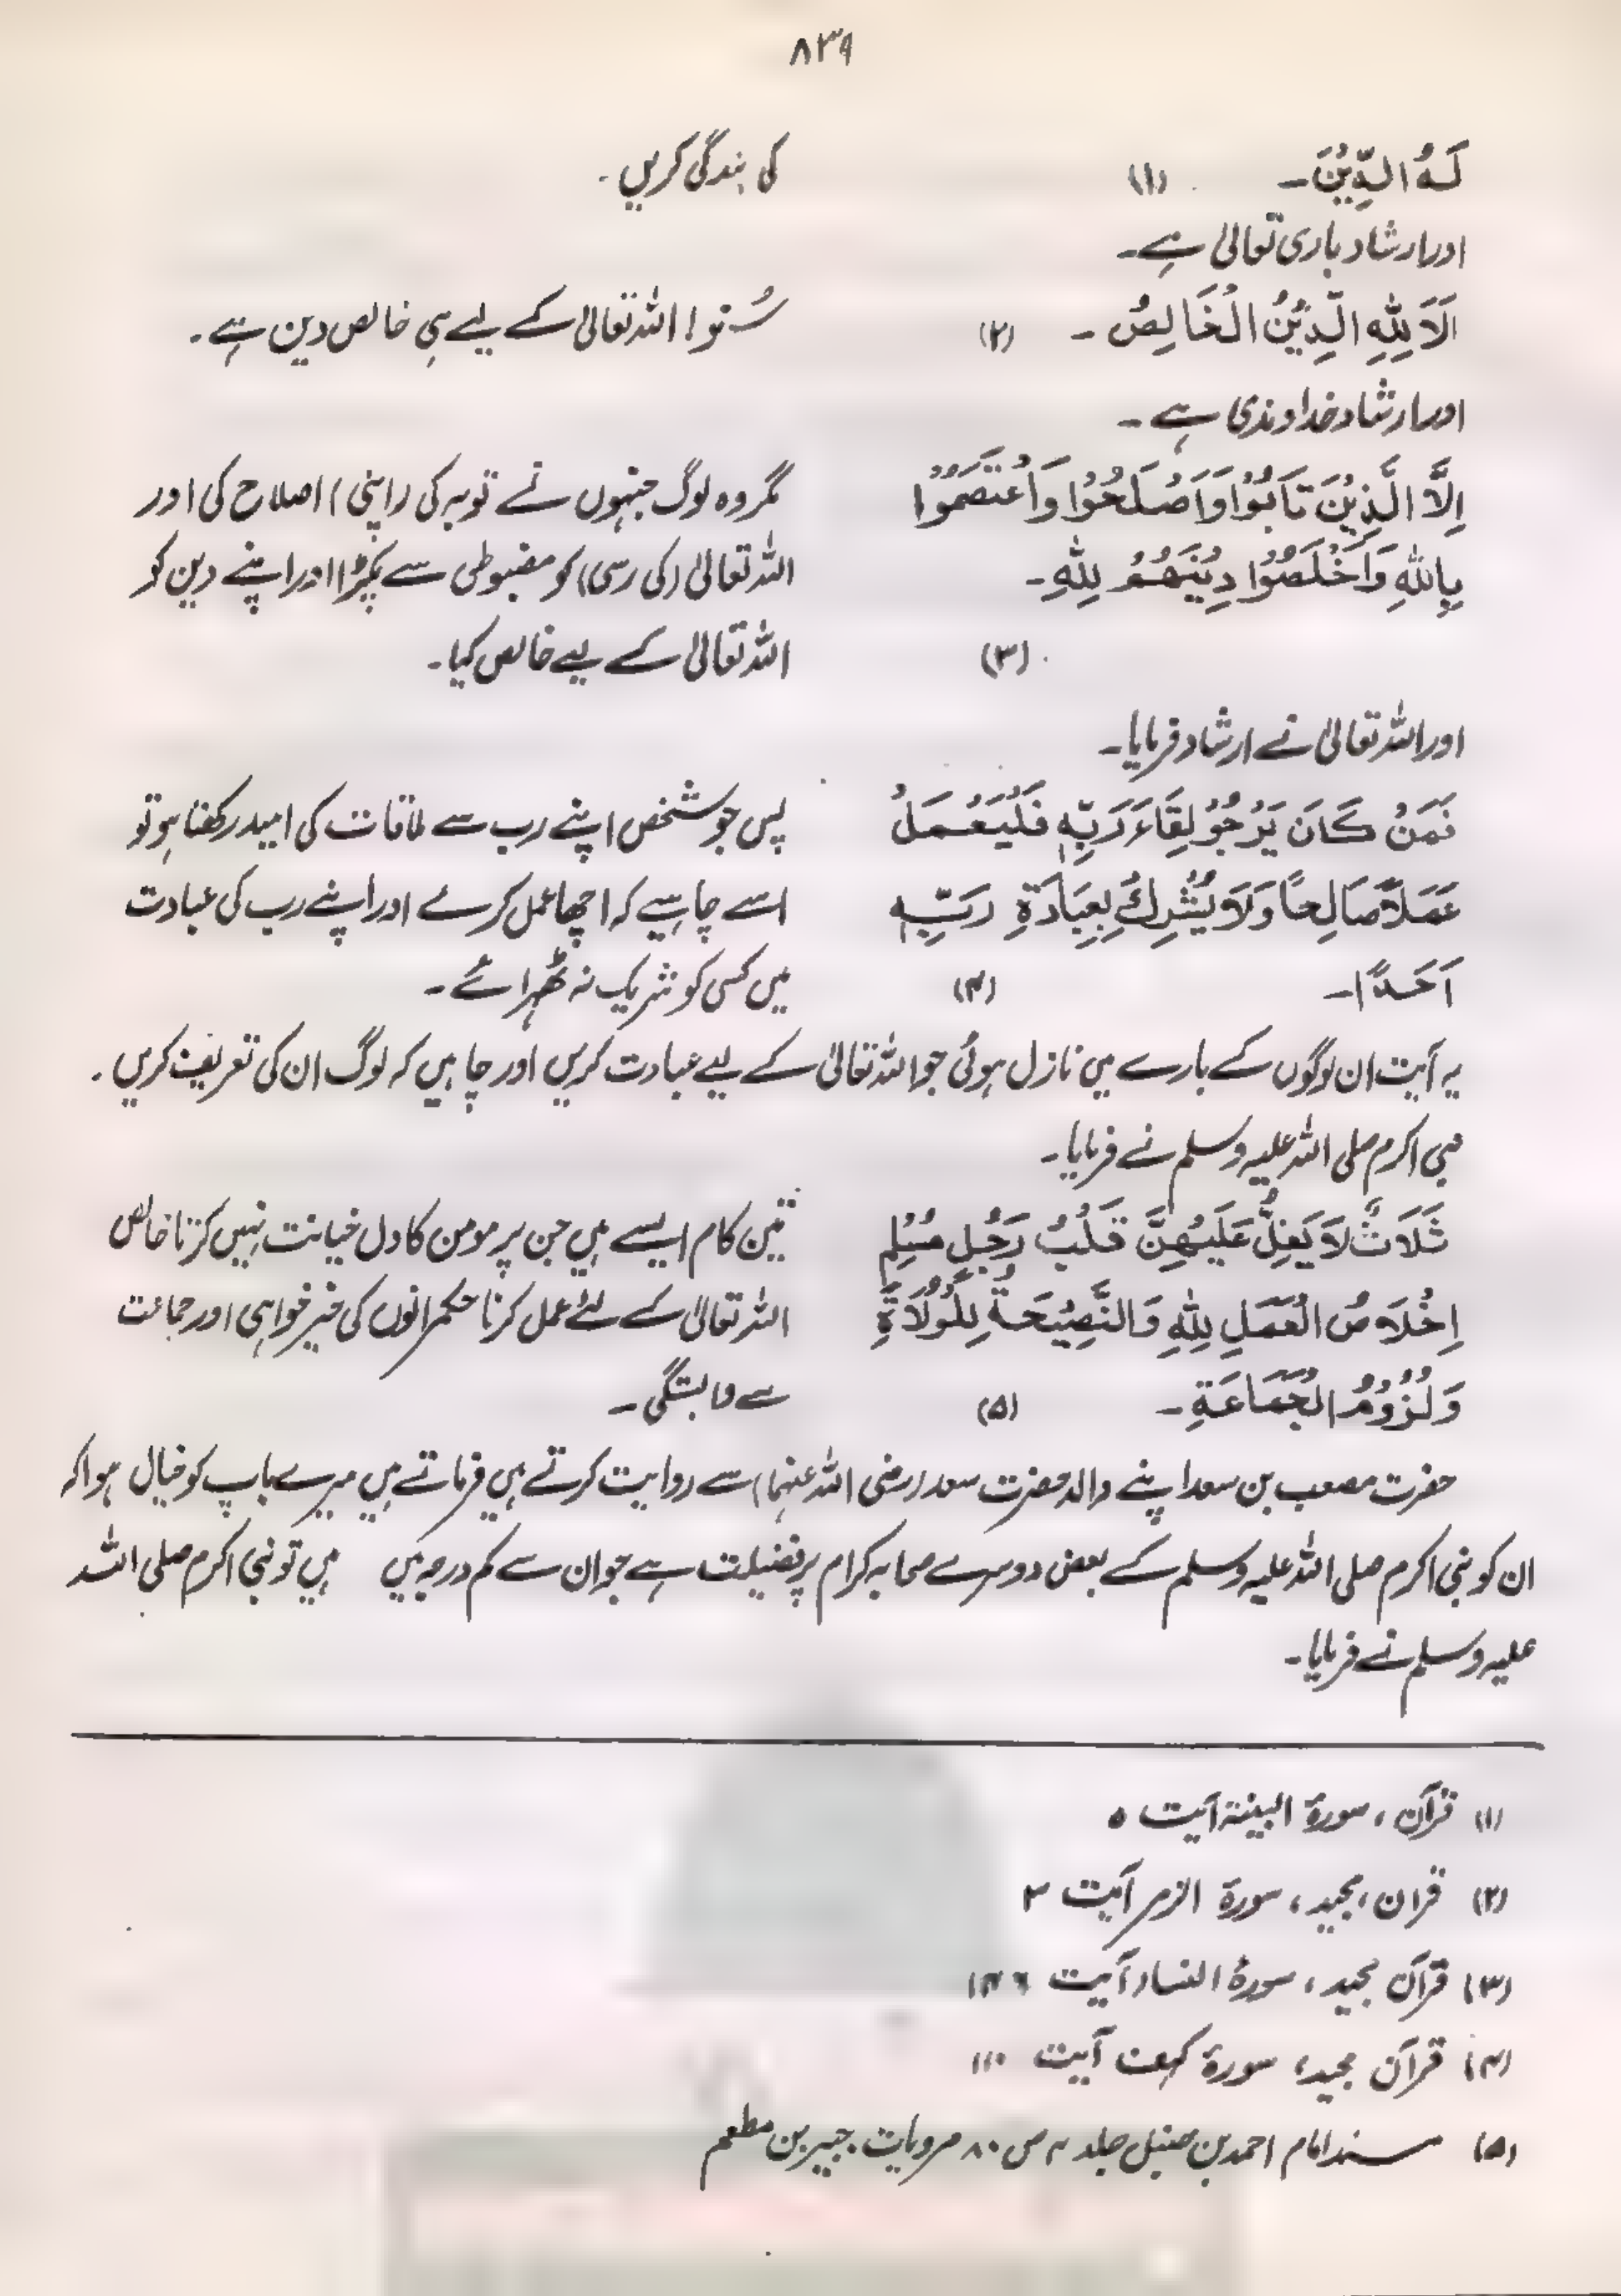 ۸۳۹
لَهُ الدِّيْنَ۔ (۱) کی بندگی کریں۔
اور ارشاد باری تعالیٰ ہے۔
اَلَا لِلّٰهِ الدِّيْنُ الْخَالِصُ۔ (۲) سُنو! اللہ تعالیٰ کے لیے ہی خالص دین ہے۔
اور ارشاد خداوندی ہے۔
اِلَّا الَّذِيْنَ تَابُوْا وَاَصْلَحُوْا وَاعْتَصَمُوْا مگر وہ لوگ جنہوں نے توبہ کی (اپنی) اصلاح کی اور
بِاللّٰهِ وَاَخْلَصُوْا دِيْنَهُمْ لِلّٰهِ۔ اللہ تعالیٰ (کی رسی) کو مضبوطی سے پکڑا اور اپنے دین کو
(۳) اللہ تعالیٰ کے لیے خالص کیا۔
اور اللہ تعالیٰ نے ارشاد فرمایا۔
فَمَنْ كَانَ يَرْجُوْ لِقَاءَ رَبِّهٖ فَلْيَعْمَلْ پس جو شخص اپنے رب سے ملاقات کی امید رکھتا ہو تو
عَمَلاً صَالِحاً وَلَا يُشْرِكْ بِعِبَادَةِ رَبِّهٖ اسے چاہیے کہ اچھا عمل کرے اور اپنے رب کی عبادت
اَحَدًا۔ (۴) میں کسی کو شریک نہ ٹھہرائے۔
یہ آیت ان لوگوں کے بارے میں نازل ہوئی جو اللہ تعالیٰ کے لیے عبادت کریں اور چاہیں کہ لوگ ان کی تعریف کریں۔
نبی اکرم صلی اللہ علیہ وسلم نے فرمایا۔
ثَلَاثٌ لَا يَغِلُّ عَلَيْهِنَّ قَلْبُ رَجُلٍ مُسْلِمٍ تین کام ایسے ہیں جن پر مومن کا دل خیانت نہیں کرتا خالص
اِخْلَاصُ الْعَمَلِ لِلّٰهِ وَالنَّصِيْحَةُ لِلْوُلَاةِ اللہ تعالیٰ کے لئے عمل کرنا حکمرانوں کی خیر خواہی اور جماعت
وَلُزُوْمُ الْجَمَاعَةِ۔ (۵) سے وابستگی۔
حضرت مصعب بن سعد اپنے والد حضرت سعد (رضی اللہ عنہما) سے روایت کرتے ہیں فرماتے ہیں میرے باپ کو خیال ہوا کہ
ان کو نبی اکرم صلی اللہ علیہ وسلم کے بعض دوسرے صحابہ کرام پر فضیلت ہے جو ان سے کم درجہ میں ہیں تو نبی اکرم صلی اللہ
علیہ وسلم نے فرمایا۔
(۱) قرآن ، سورۃ البینۃ آیت ۵
(۲) قران مجید ، سورۃ الزمر آیت ۳
(۳) قرآن مجید ، سورۃ النساء آیت ۱۴۶
(۴) قرآن مجید، سورۃ کہف آیت ۱۱۰
(۵) مسند امام احمد بن حنبل جلد ۴ ص ۸۰ مرویات جبیر بن مطعم